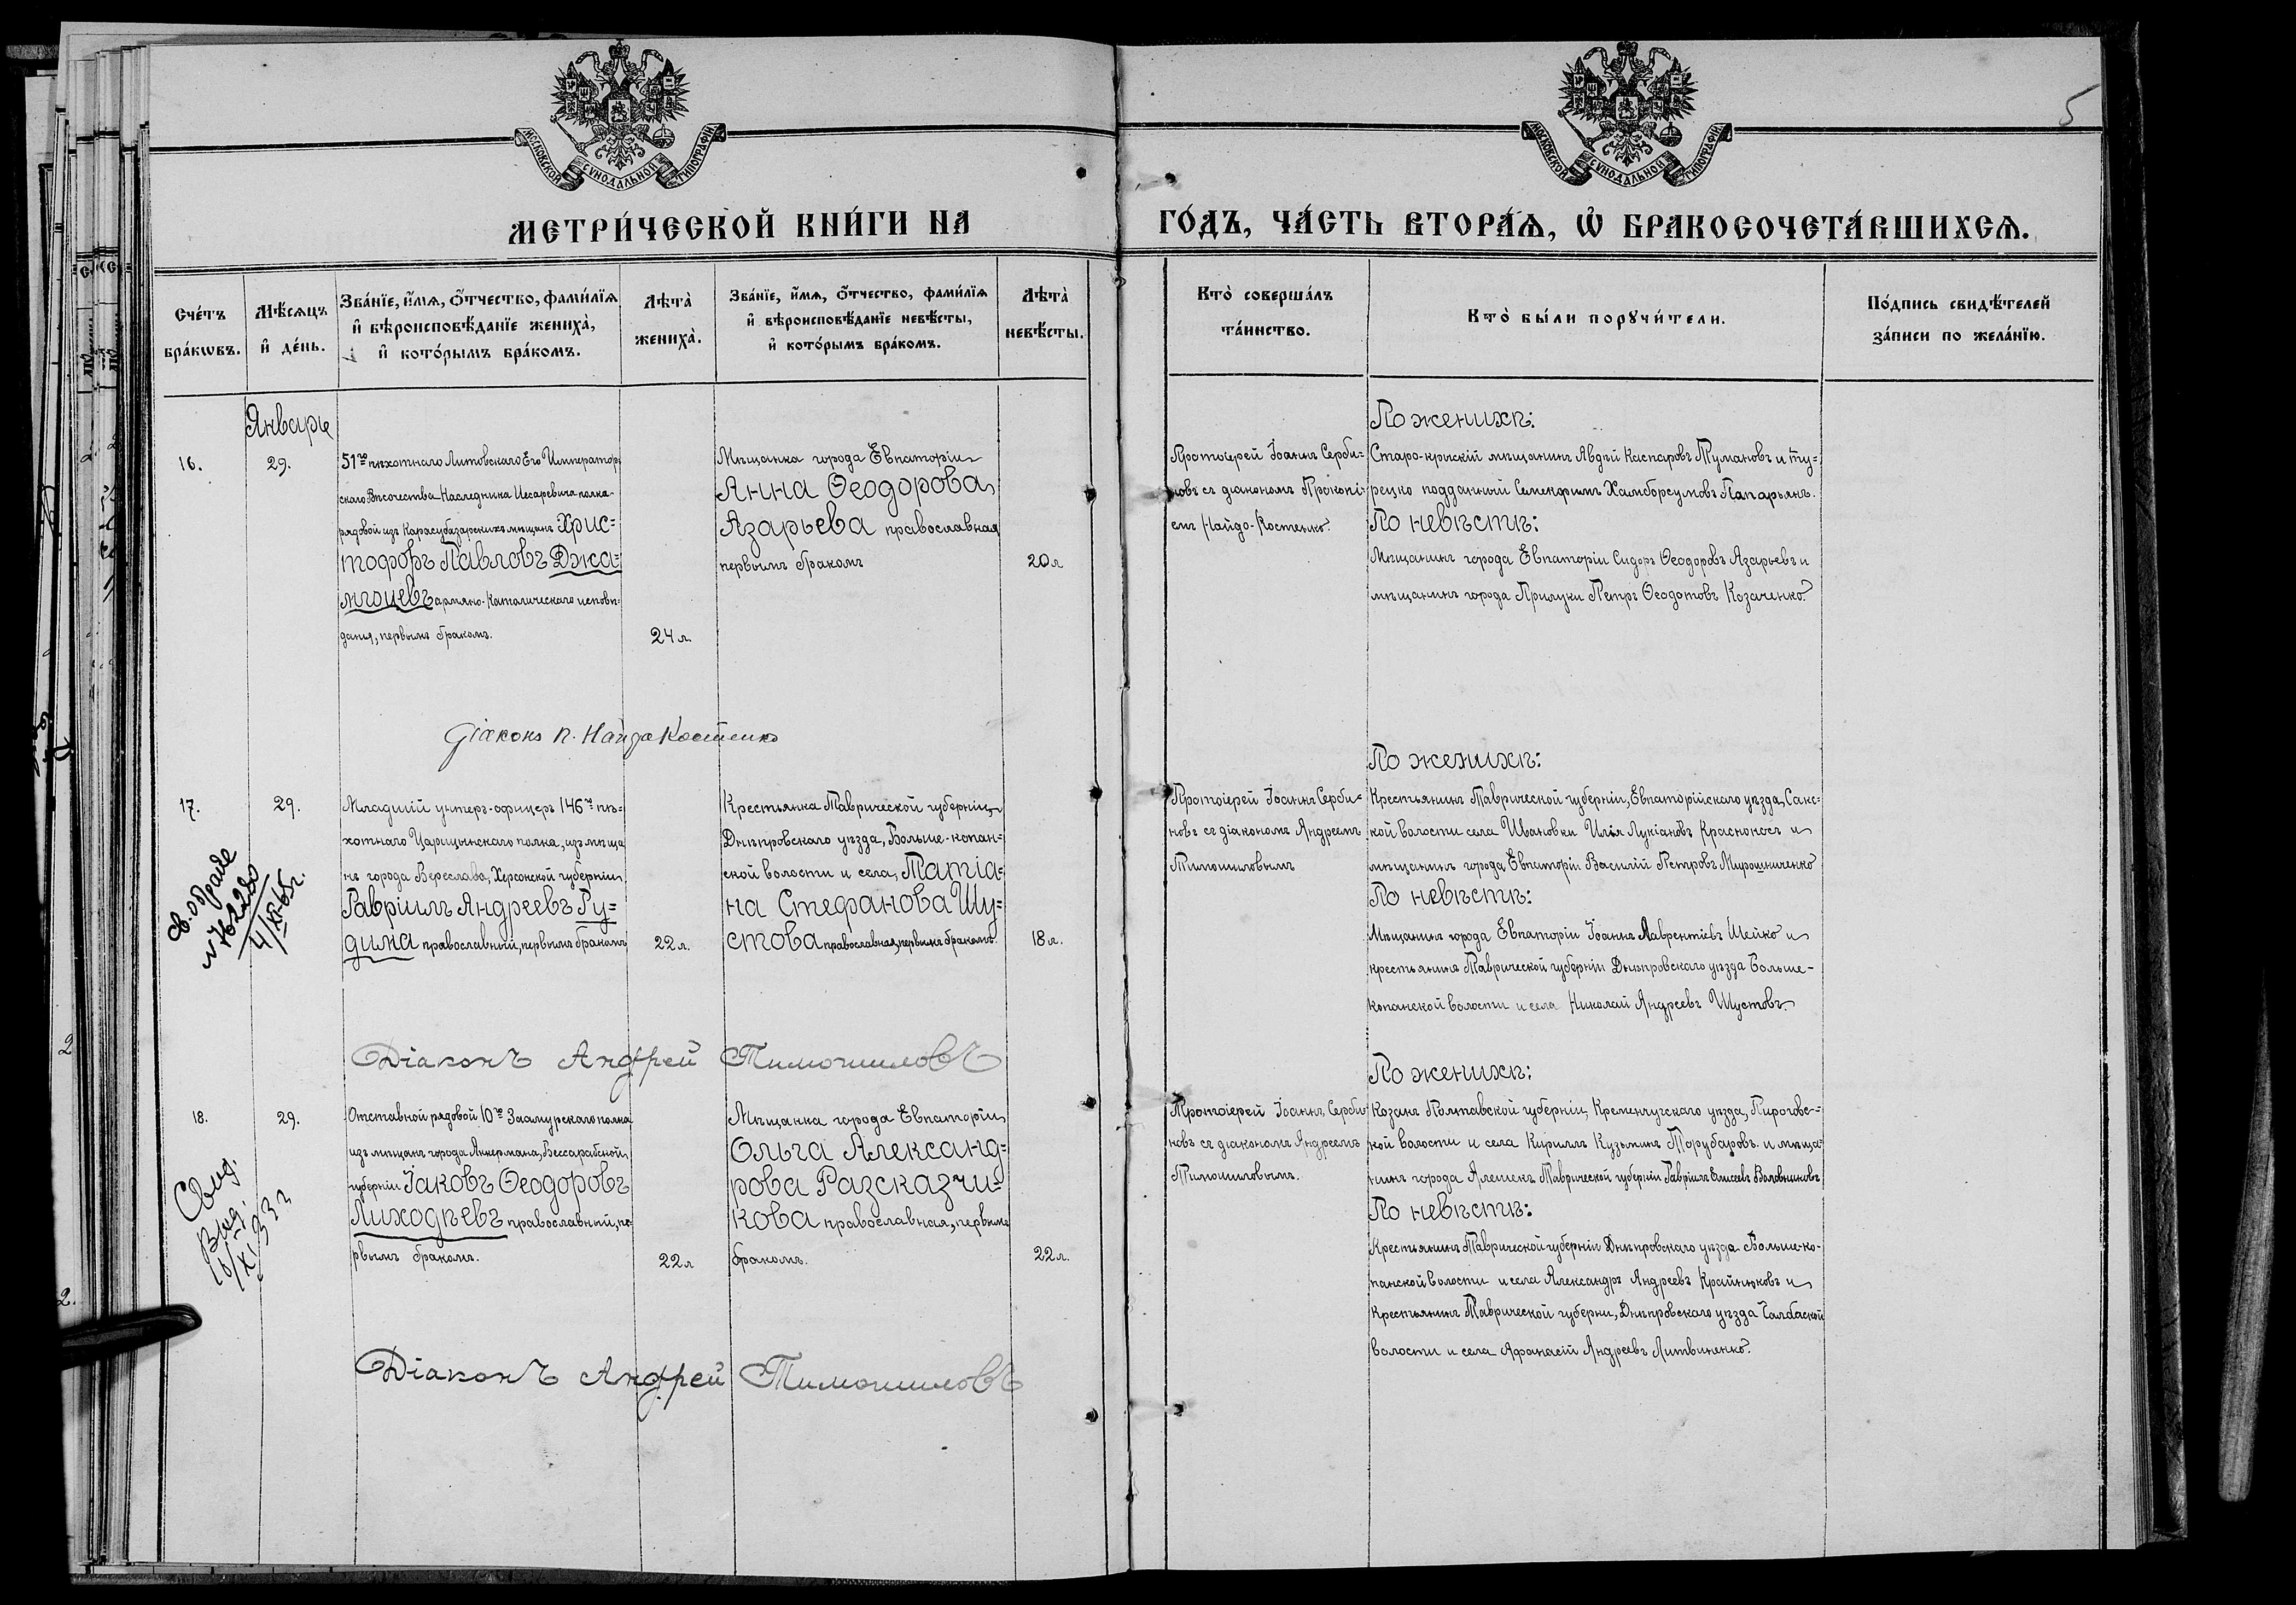 МОСКОВСКОЙ СУНОДАЛЬНОЙ ТИПОГРАФІИ
МОСКОВСКОЙ СУНОДАЛЬНОЙ ТИПОГРАФІИ
5
МЕТРИ́ЧЕСКОЙ КНИ́ГИ НА
ГО́ДЪ, ЧА́СТЬ ВТОРА́Ѧ, Ѽ БРАКОСОЧЕТА́ВШИХСѦ.
Сче́тъ
бра́кѡвъ.
Мѣ́сѧцъ
и҆ де́нь.
Зва́нїе, и҆́мѧ, ѻ҆́тчество, фами́лїѧ
и҆ вѣроисповѣ́данїе жениха̀,
и҆ кото́рымъ бра́комъ.
Лѣта̀
жениха̀.
Зва́нїе, и҆́мѧ, ѻ҆́тчество, фами́лїѧ
и҆ вѣроисповѣ́данїе невѣ́сты,
и҆ кото́рымъ бра́комъ.
Лѣта̀
невѣ́сты.
Кто̀ соверша́лъ
та́инство.
Кто̀ бы́ли порꙋчи́тели.
По́дпись свидѣ́телей
за́писи по жела́нїю.
Январь
16.
29.
51го пѣхотнаго Литовскаго Его Император
скаго Высочества Наследника Цесаревича полка
рядовой изъ Карасубазарскихъ мѣщанъ Хрис=
тофоръ Павловъ Джа=
нгоцевъ армяно-католическаго исповѣ=
данія, первымъ бракомъ.
24 л.
Мѣщанка города Евпаторіи
Анна Ѳеодорова
Азарьева православная
первымъ бракомъ
20 л
Протоіерей Іоаннъ Серби=
новъ съ діакономъ Прокопі-
емъ Найдо-Костенко.
По женихѣ:
Старо-крымскій мѣщанинъ Авдѣй Каспаровъ Тумановъ и ту=
рецко подданный Хамборсумовъ Папарьянъ.
По невѣстѣ:
Мѣщанинъ города Евпаторіи Сидоръ Ѳеодоровъ Азарьевъ и
мѣщанинъ города Прилуки Петръ Ѳеодотовъ Козаченко.
Діаконъ П. Найда Костенко
17.
29.
св. о браке
№ 762280
4/XI-65г.
Младшій унтеръ-офицеръ 146го пѣ=
хотнаго Царицынскаго полка, изъ мѣща
нъ города Береслава, Херсонской губерніи,
Гавріилъ Андреевъ Гу=
дима православный, первымъ бракомъ
22 л.
Крестьянка Таврической губерніи,
Днѣпровскаго уѣзда, Больше-копан=
ской волости и села, Татіа=
на Стефанова Шу=
стова православная, первымъ бракомъ.
18 л.
Протоіерей Іоаннъ Серби=
новъ съ діакономъ Андреемъ
Тимошиловымъ
По женихѣ:
Крестьянинъ Таврической губерніи, Евпаторійскаго уѣзда, Сакс=
кой волости села Ивановки Илія Лукіановъ Красноносъ и
мѣщанинъ города Евпаторіи Василій Петровъ Мирошниченко
По невѣстѣ:
Мѣщанинъ города Евпаторіи Іоаннъ Лаврентіевъ Шейко и
крестьянинъ Таврической губерніи Днѣпровскаго уѣзда Больше-
копанской волости и села Николай Андреевъ Шустовъ.
Діаконъ Андрей Тимошиловъ
18.
29.
Свид.
выд.
16/XI 933 г
Отставной рядовой 10го Заамурскаго полка
изъ мѣщанъ города Аккермана, Бессарабской
губерніи Іаковъ Ѳеодоровъ
Лиходѣевъ православный, пе
рвымъ бракомъ.
22 л
Мѣщанка города Евпаторіи
Ольга Александ=
рова Разсказчи=
кова православная, первымъ
бракомъ.
22 л.
Протоіерей Іоаннъ Серби
новъ съ діакономъ Андреемъ
Тимошиловымъ.
По женихѣ:
Козакъ Полтавской губерніи, Кременчугскаго уѣзда, Пироговс=
кой волости и села Кириллъ Кузьминъ Торубаровъ. и мѣща=
нинъ города Алешекъ Таврической губерніи Гавріилъ Елисеевъ Воловниковъ
По невѣстѣ:
Крестьянинъ Таврической губерніи Днѣпровскаго уѣзда Больше-ко-
панской волости и села Александръ Андреевъ Крайнюковъ и
Крестьянинъ Таврической губерни, Днѣпровскаго уѣзда Чалбаской
волости и села Афанасій Андреевъ Литвиненко.
Діаконъ Андрей Тимошиловъ